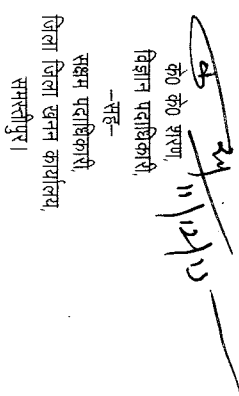 11/12/13
के० के० शरण,
विज्ञान पदाधिकारी,
–सह–
सक्षम पदाधिकारी,
जिला जिला खनन कार्यालय,
समस्तीपुर।